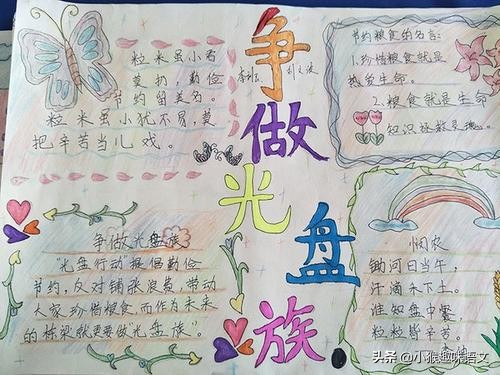 争做光盘族
粒米虽小君
莫扔勤俭
节约留美名。
粒米虽小犹不易,莫
把辛苦当儿戏。
节约粮食的名言:
1.珍惜粮食就是
热爱生命。
2.粮食就是生命
知识拯救灵魂。
争做光盘族
"光盘行动"提倡勤俭
节约,反对铺张浪费,带动
人家珍惜粮食,而作为未来
的栋梁就更要做"光盘族"。
悯农
锄河日当午,
汗滴禾下土。
谁知盘中餐
粒粒皆辛苦。
头条@小猴趣味语文